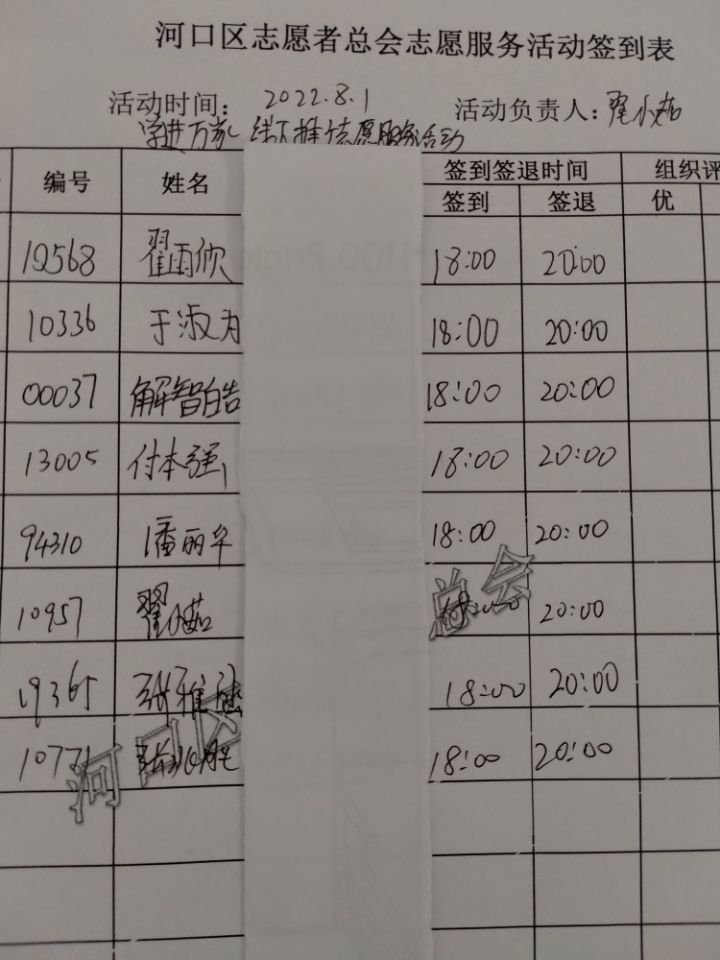 河口区志愿者总会志愿服务活动签到表
活动时间: 2022.8.1 活动负责人: 翟小茹
学进万家 线下推广志愿服务活动
编号 姓名 签到签退时间 组织评
签到 签退 优
10568 翟雨欣 18:00 20:00
10336 于淑为 18:00 20:00
00037 解智皓 18:00 20:00
13005 付本强 18:00 20:00
94310 潘丽华 18:00 20:00
10957 翟小茹 18:00 20:00
19365 张雅涵 18:00 20:00
10771 18:00 20:00
河口区
总会